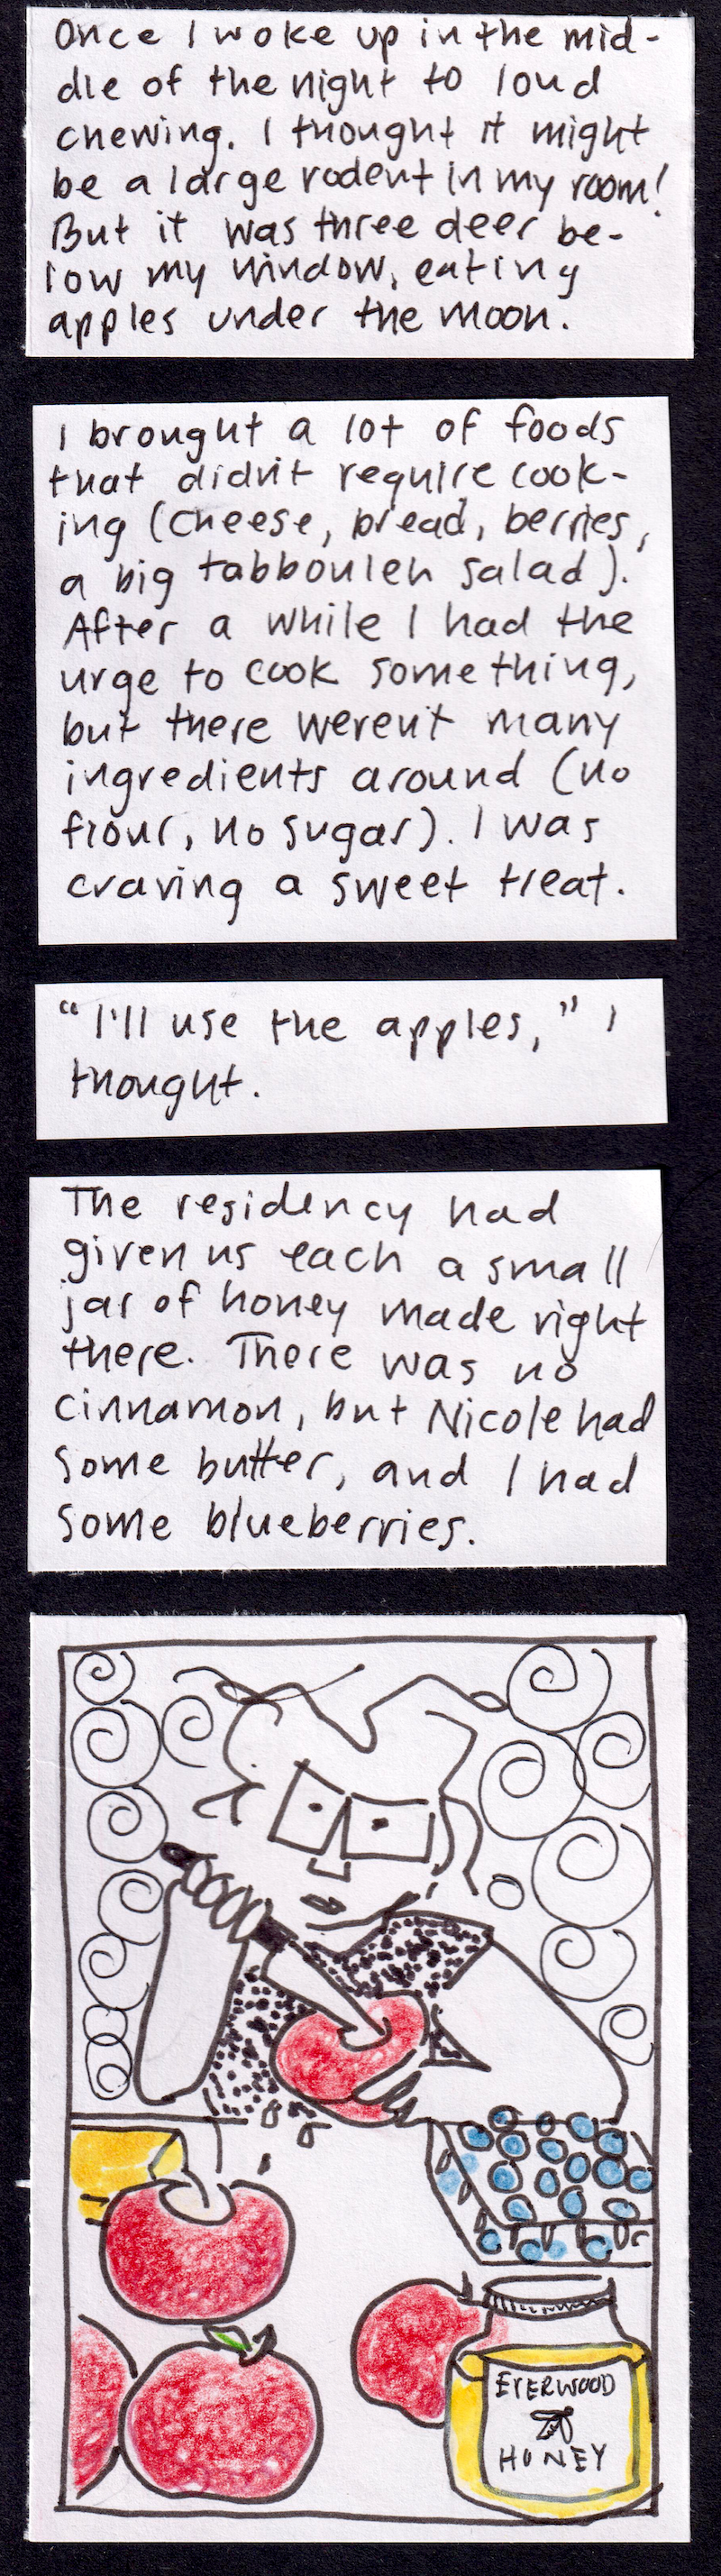 Once I woke up in the mid-
dle of the night to loud
chewing. I thought it might
be a large rodent in my room!
But it was three deer be-
low my window, eating
apples under the moon.
I brought a lot of foods
that didn't require cook-
ing (cheese, bread, berries,
a big tabbouleh salad).
After a while I had the
urge to cook something,
but there weren't many
ingredients around (no
flour, no sugar). I was
craving a sweet treat.
"I'll use the apples," I
thought.
The residency had
given us each a small
jar of honey made right
there. There was no
cinnamon, but Nicole had
some butter, and I had
some blueberries.
EVERWOOD
HONEY